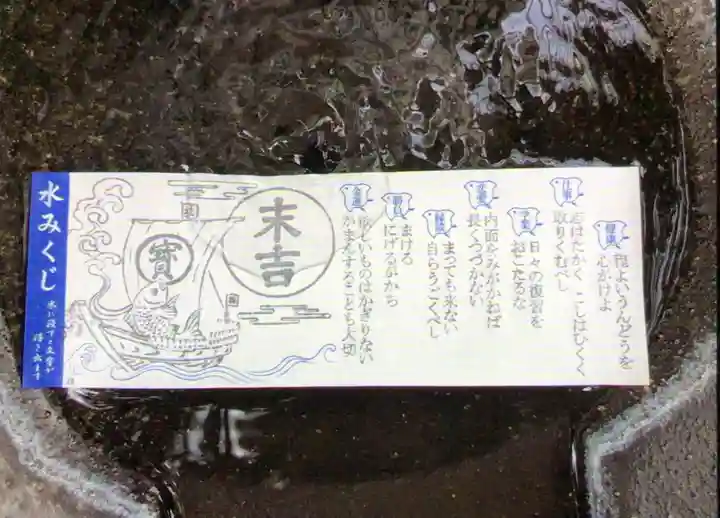 水みくじ
水に浸すと文字が
浮き出ます
末吉
寳
健康
程よいうんどうを
心がけよ
仕事
志はたかく こしはひくく
取りくむべし
学業
日々の復習を
おこたるな
恋愛
内面をみがかねば
長くつづかない
縁談
まっても来ない
自らうごくべし
勝負
まける
にげるがかち
金運
欲しいものはかぎりない
がまんすることも大切